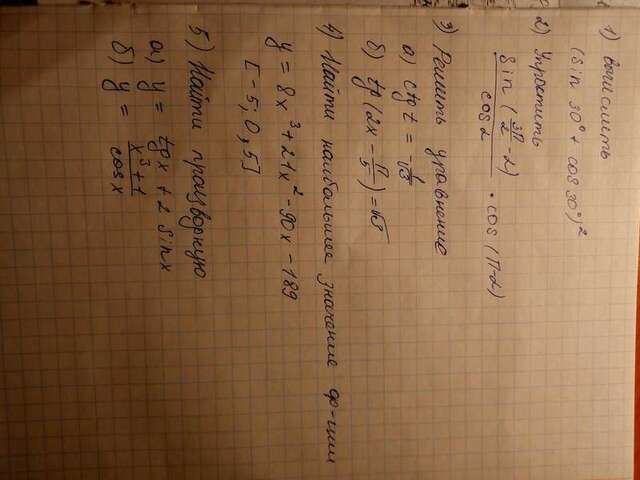 1) Вычислить
(sin 30° + cos 30°)²
2) Упростить
sin (3π/2 - α) / cos α · cos (π - α)
3) Решить уравнение
а) ctg t = - 1/√3
б) tg (2x - π/5) = √3
4) Найти наибольшее значение ф-ции
y = 8x³ + 21x² - 90x - 189
[-5; 0,5]
5) Найти призводную
а) y = tg x + 2 sin x
б) y = x³ + 1 / cos x